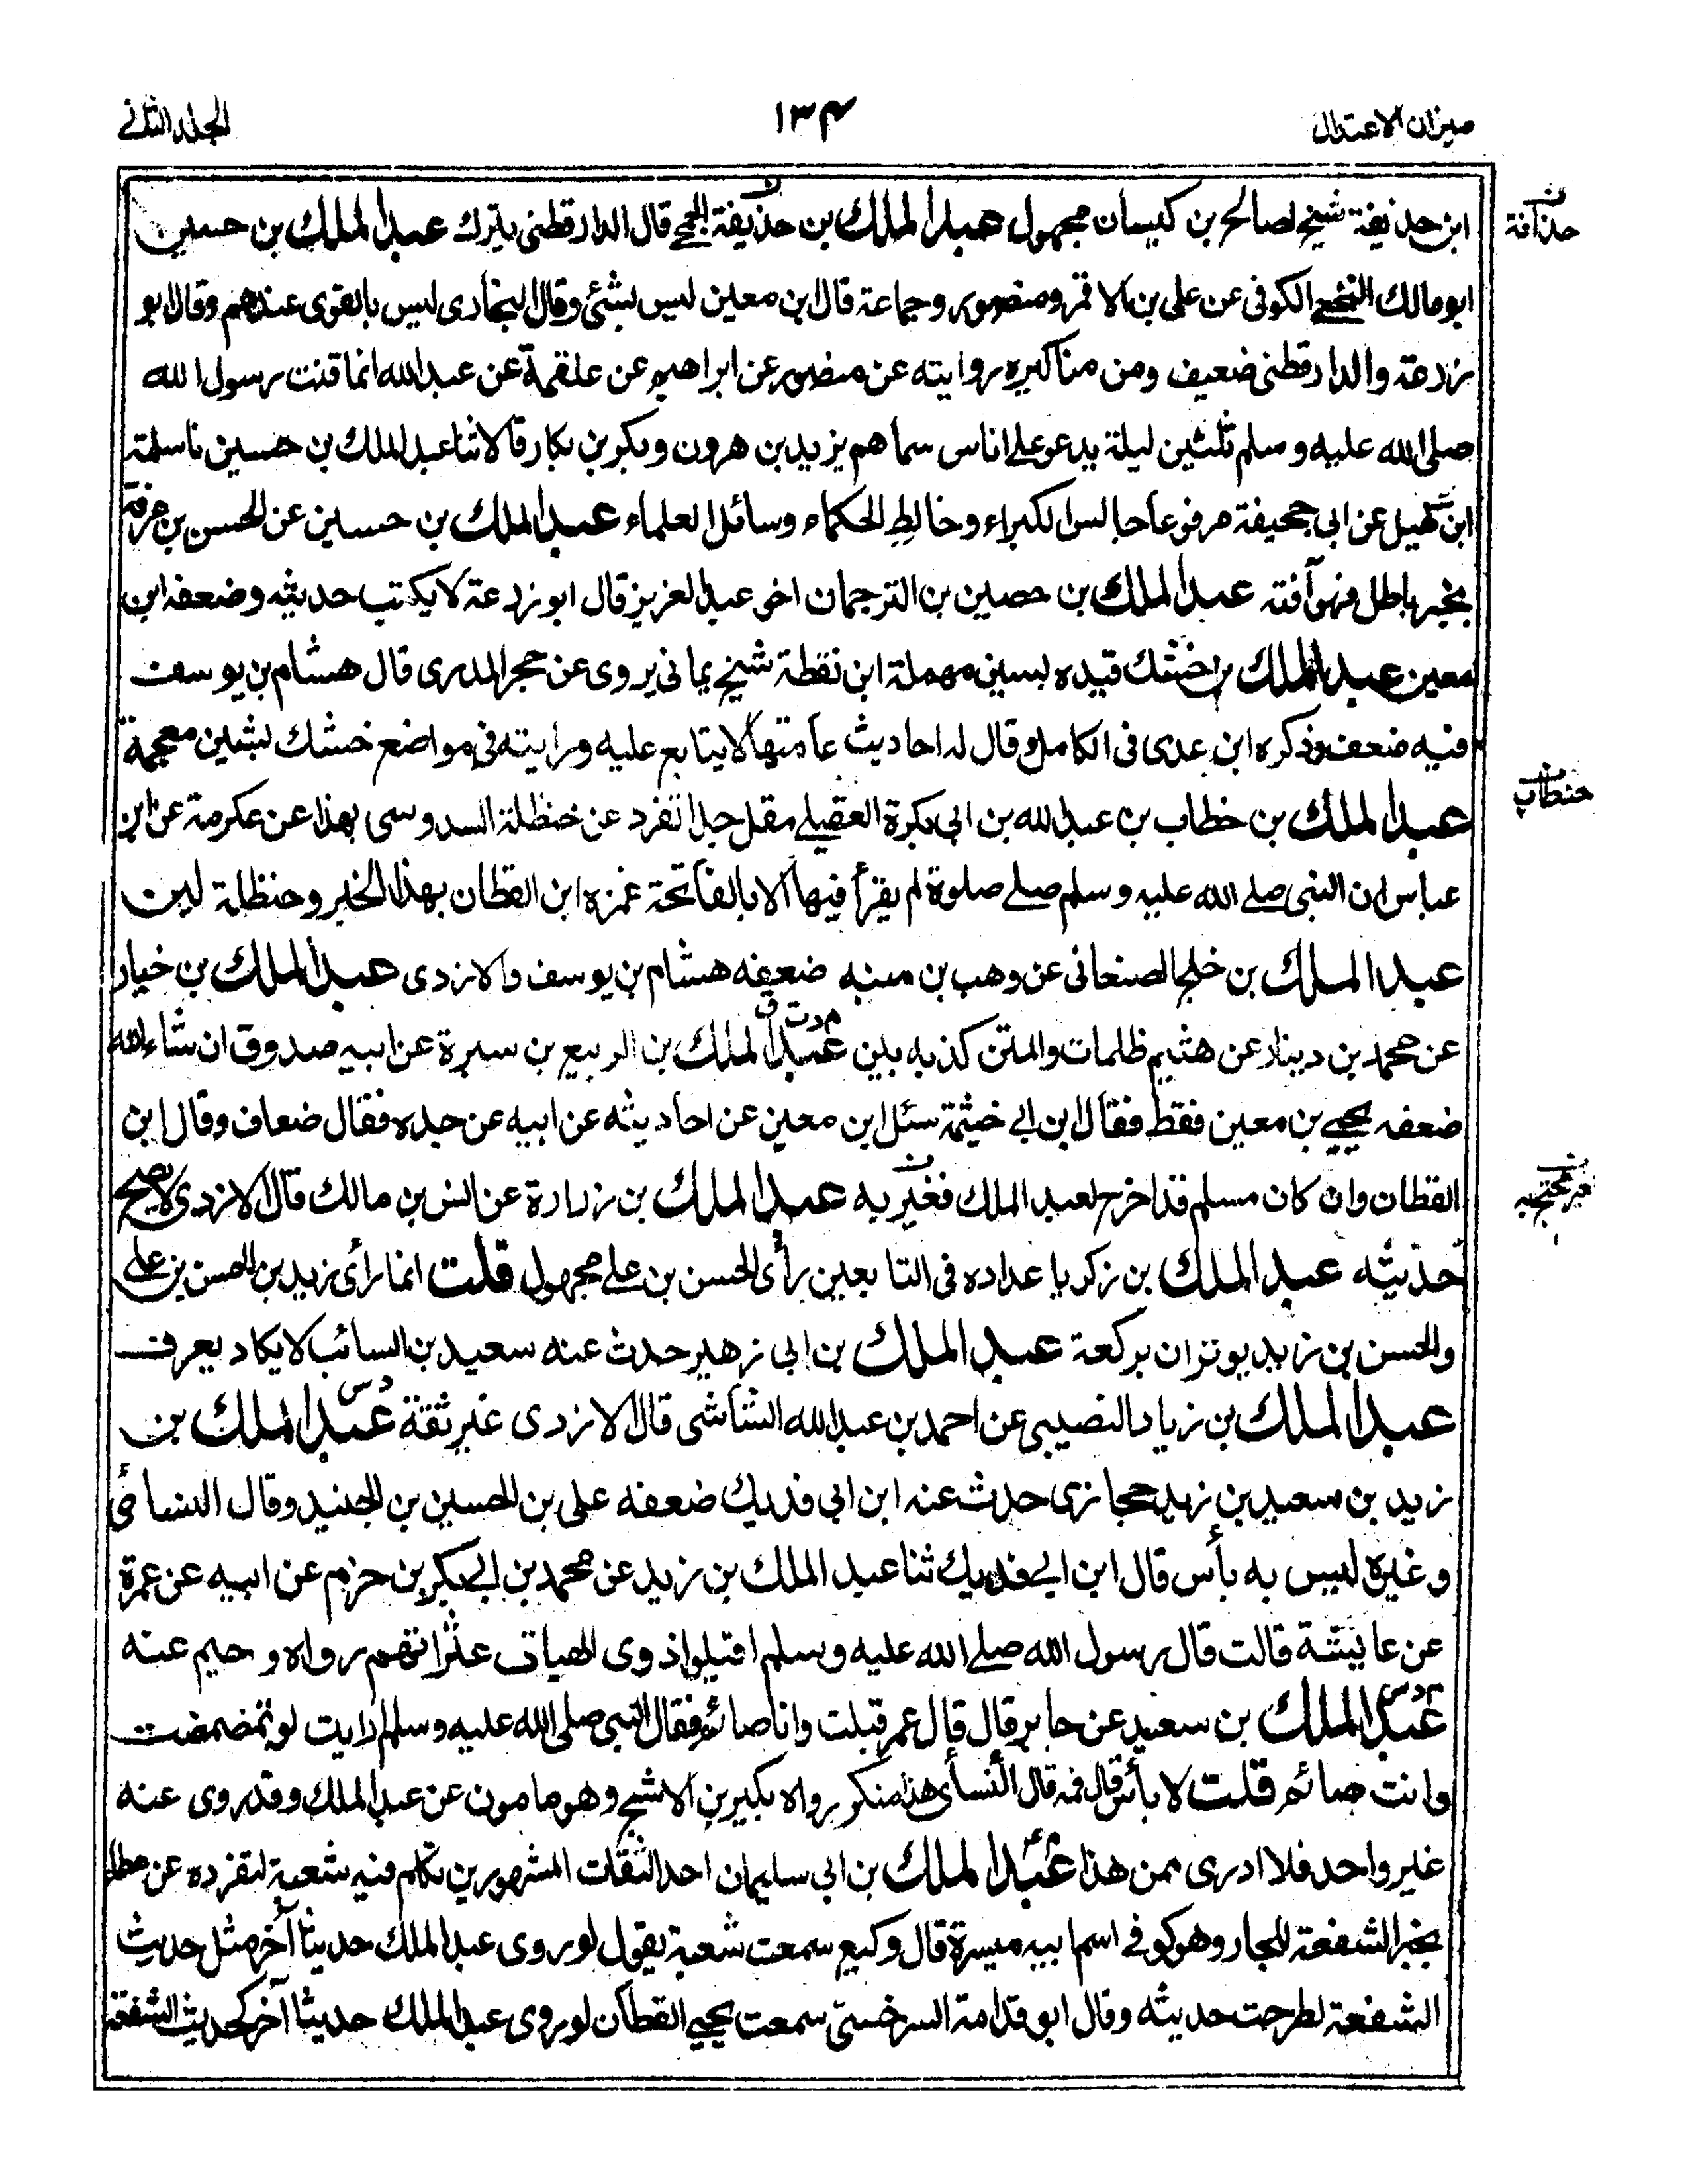 ميزان الاعتدال
١٣٤
المجلد الثاني
ابن حذيفة شيخ لصالح بن كيسان مجهول عبد الملك بن حذيفة الجمحي قال الدارقطني يترك عبد الملك بن حسين
حذافة
ابو مالك النخعي الكوفي عن علي بن الاقمر ومنصور وجماعة قال ابن معين ليس بشئ وقال البخاري ليس بالقوى عندهم وقال ابو
زرعة والدارقطني ضعيف ومن مناكيره روايته عن منصور عن ابراهيم عن علقمة عن عبد الله انما قنت رسول الله
صلى الله عليه وسلم ثلثين ليلة يدعو على اناس سماهم يزيد بن هرون وبكر بن بكار قالا ثنا عبد الملك بن حسين نا سلمة
ابن كهيل عن ابي جحيفة مرفوعا جالس الكبراء وخالط الحكماء وسائل العلماء عبد الملك بن حسين عن الحسن بن عرفة
بخبر باطل فهو آفته عبد الملك بن حصين بن الترجمان اخو عبد العزيز قال ابو زرعة لا يكتب حديثه وضعفه ابن
معين عبد الملك بن خشك قيده بسين مهملة ابن نقطة شيخ يماني يروى عن حجر المدرى قال هشام بن يوسف
فيه ضعف وذكره ابن عدى في الكامل وقال له احاديث عامتها لا يتابع عليه ورايته في مواضع خشك بشين معجمة
عبد الملك بن خطاب بن عبد الله بن ابي بكرة العقيلي مقل جدا تفرد عن حنظلة السدوسى بهذا عن عكرمة عن ابن
خطاب
عباس ان النبي صلى الله عليه وسلم صلى صلوة لم يقرأ فيها الا بالفاتحة غمزه ابن القطان بهذا الخبر وحنظلة لين
عبد الملك بن خلج الصنعاني عن وهب بن منبه ضعفه هشام بن يوسف والازدى عبد الملك بن خيار
عن محمد بن دينار عن هشيم ظلمات والمتن كذبه بين عبد الملك بن الربيع بن سبرة عن ابيه صدوق ان شاء الله
ضعفه يحيى بن معين فقط فقال ابن ابي خيثمة سئل ابن معين عن احاديثه عن ابيه عن جده فقال ضعاف وقال ابن
القطان وان كان مسلم قد اخرج لعبد الملك فغير به عبد الملك بن زرارة عن انس بن مالك قال الازدى لا يصح
غير محتج به
حديثه عبد الملك بن زكريا عداده في التابعين رأى الحسن بن علي مجهول قلت انما رأى زيد بن الحسن بن علي
والحسن بن زيد يوتران بركعة عبد الملك بن ابي زهير حدث عنه سعيد بن السائب لا يكاد يعرف
عبد الملك بن زياد النصيبى عن احمد بن عبد الله الشاشى قال الازدى غير ثقة عبد الملك بن
زيد بن سعيد بن زيد حجازى حدث عنه ابن ابي فديك ضعفه على بن الحسين بن الجنيد وقال النسائى
وغيره ليس به بأس قال ابن ابي فديك ثنا عبد الملك بن زيد عن محمد بن ابي بكر بن حزم عن ابيه عن عمرة
عن عايشة قالت قال رسول الله صلى الله عليه وسلم اقيلوا ذوى الهيات عثراتهم رواه دحيم عنه
عبد الملك بن سعيد عن جابر قال قال عمر قبلت وانا صائم فقال النبي صلى الله عليه وسلم ارايت لو تمضمضت
وانت صائم قلت لا بأس قال فمه قال النسأى هذا منكر رواه بكير بن الاشج وهو مامون عن عبد الملك وقد روى عنه
غير واحد فلا ادرى ممن هذا عبد الملك بن ابي سليمان احد الثقات المشهورين تكلم فيه شعبة لتفرده عن عطا
بخبر الشفعة للجار وهو كوفي اسم ابيه ميسرة قال وكيع سمعت شعبة يقول لو روى عبد الملك حديثا آخر مثل حديث
الشفعة لطرحت حديثه وقال ابو قدامة السرخسى سمعت يحيى القطان لو روى عبد الملك حديثا آخر كحديث الشفعة